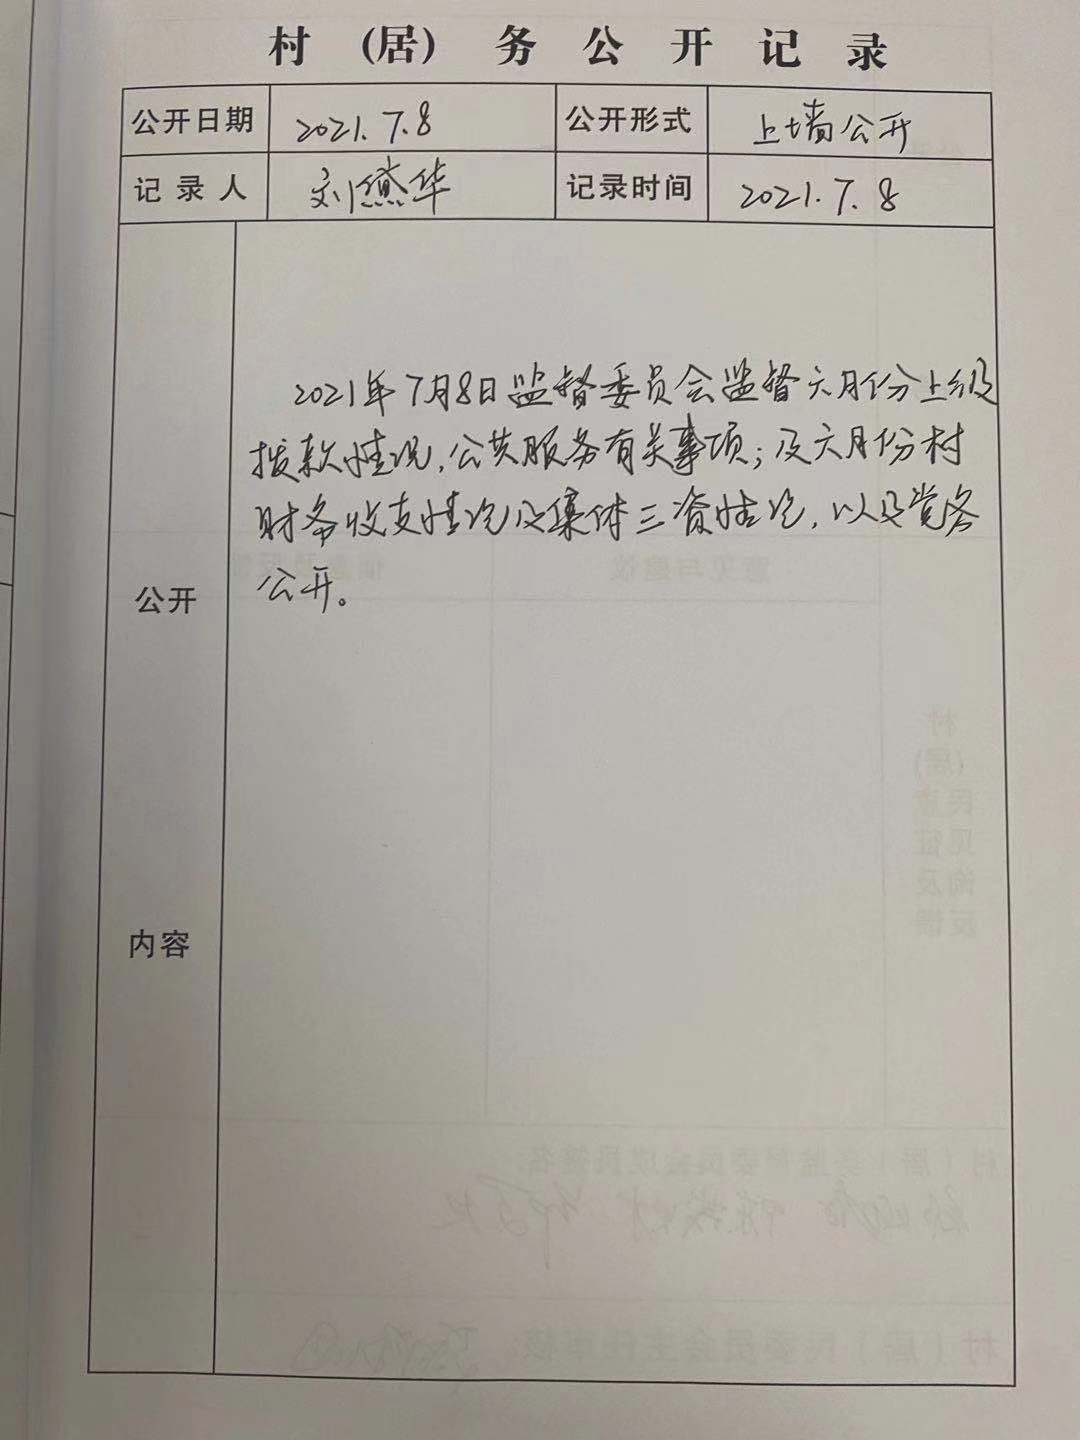 村 (居) 务 公 开 记 录
公开日期 2021.7.8 公开形式 上墙公开
记 录 人 刘 华 记录时间 2021.7.8
2021年7月8日监督委员会监督六月份上级
拨款情况,公共服务有关事项;及六月份村
财务收支情况及集体三资情况,以及党务
公开。
公开
内容